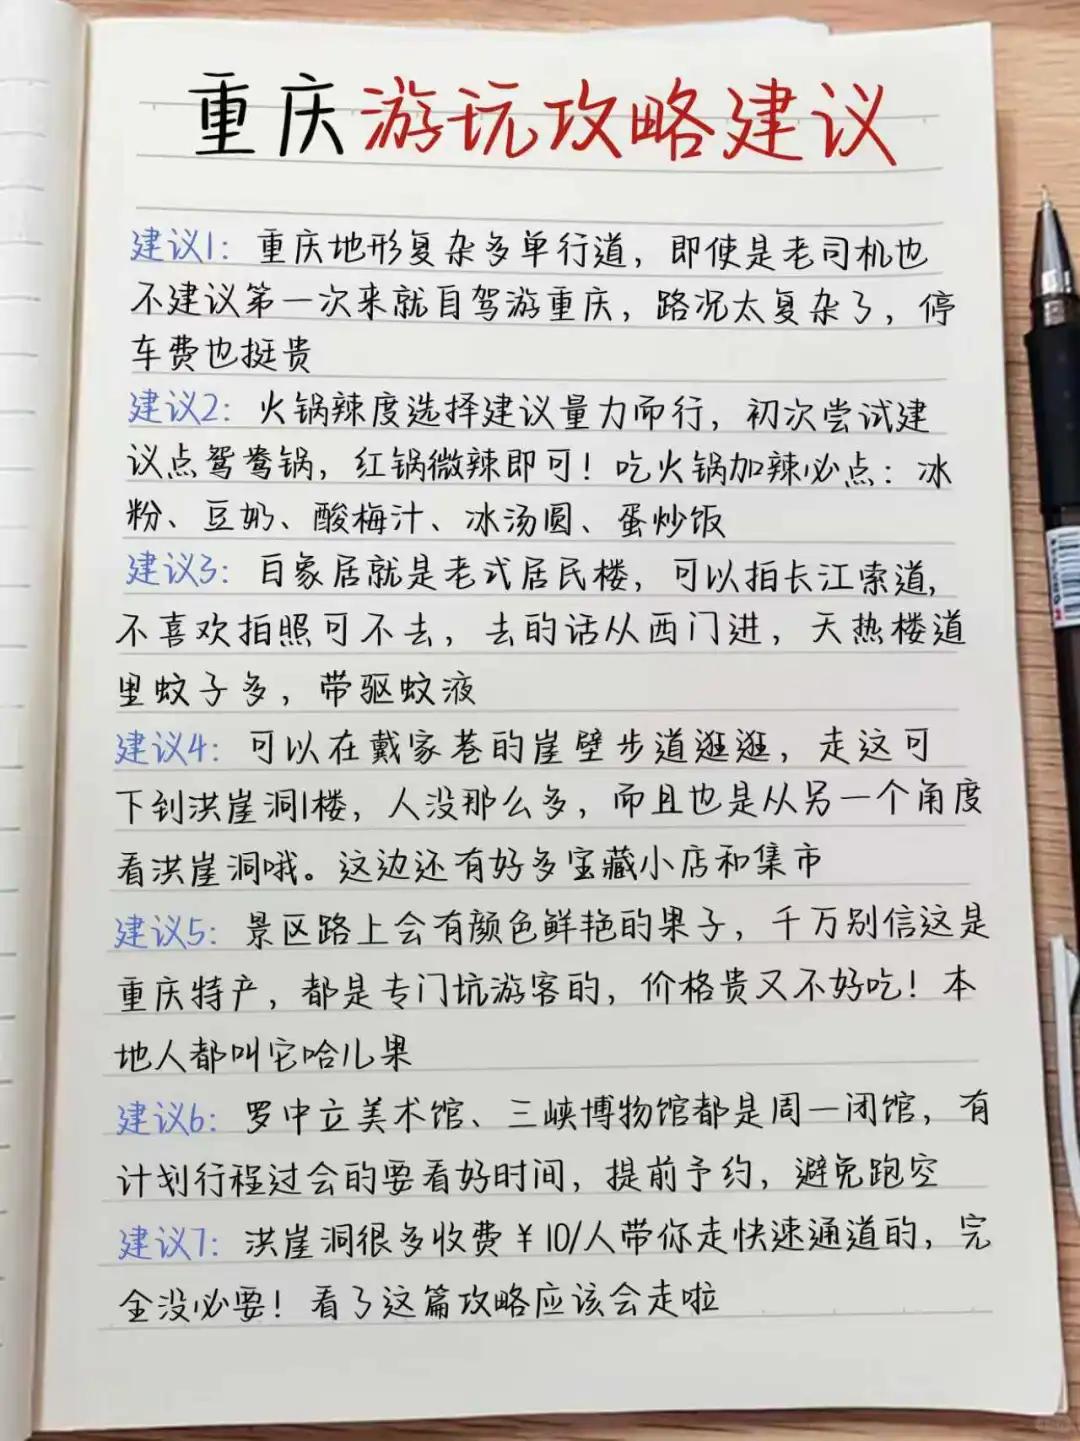 重庆游玩攻略建议
建议1：重庆地形复杂多单行道，即使是老司机也
不建议第一次来就自驾游重庆，路况太复杂了，停
车费也挺贵
建议2：火锅辣度选择建议量力而行，初次尝试建
议点鸳鸯锅，红锅微辣即可！吃火锅加辣必点：冰
粉、豆奶、酸梅汁、冰汤圆、蛋炒饭
建议3：白象居就是老式居民楼，可以拍长江索道，
不喜欢拍照可不去，去的话从西门进，天热楼道
里蚊子多，带驱蚊液
建议4：可以在戴家巷的崖壁步道逛逛，走这可
下到洪崖洞1楼，人没那么多，而且也是从另一个角度
看洪崖洞哦。这边还有好多宝藏小店和集市
建议5：景区路上会有颜色鲜艳的果子，千万别信这是
重庆特产，都是专门坑游客的，价格贵又不好吃！本
地人都叫它哈儿果
建议6：罗中立美术馆、三峡博物馆都是周一闭馆，有
计划行程过会的要看好时间，提前予约，避免跑空
建议7：洪崖洞很多收费￥10/人带你走快速通道的，完
全没必要！看了这篇攻略应该会走啦